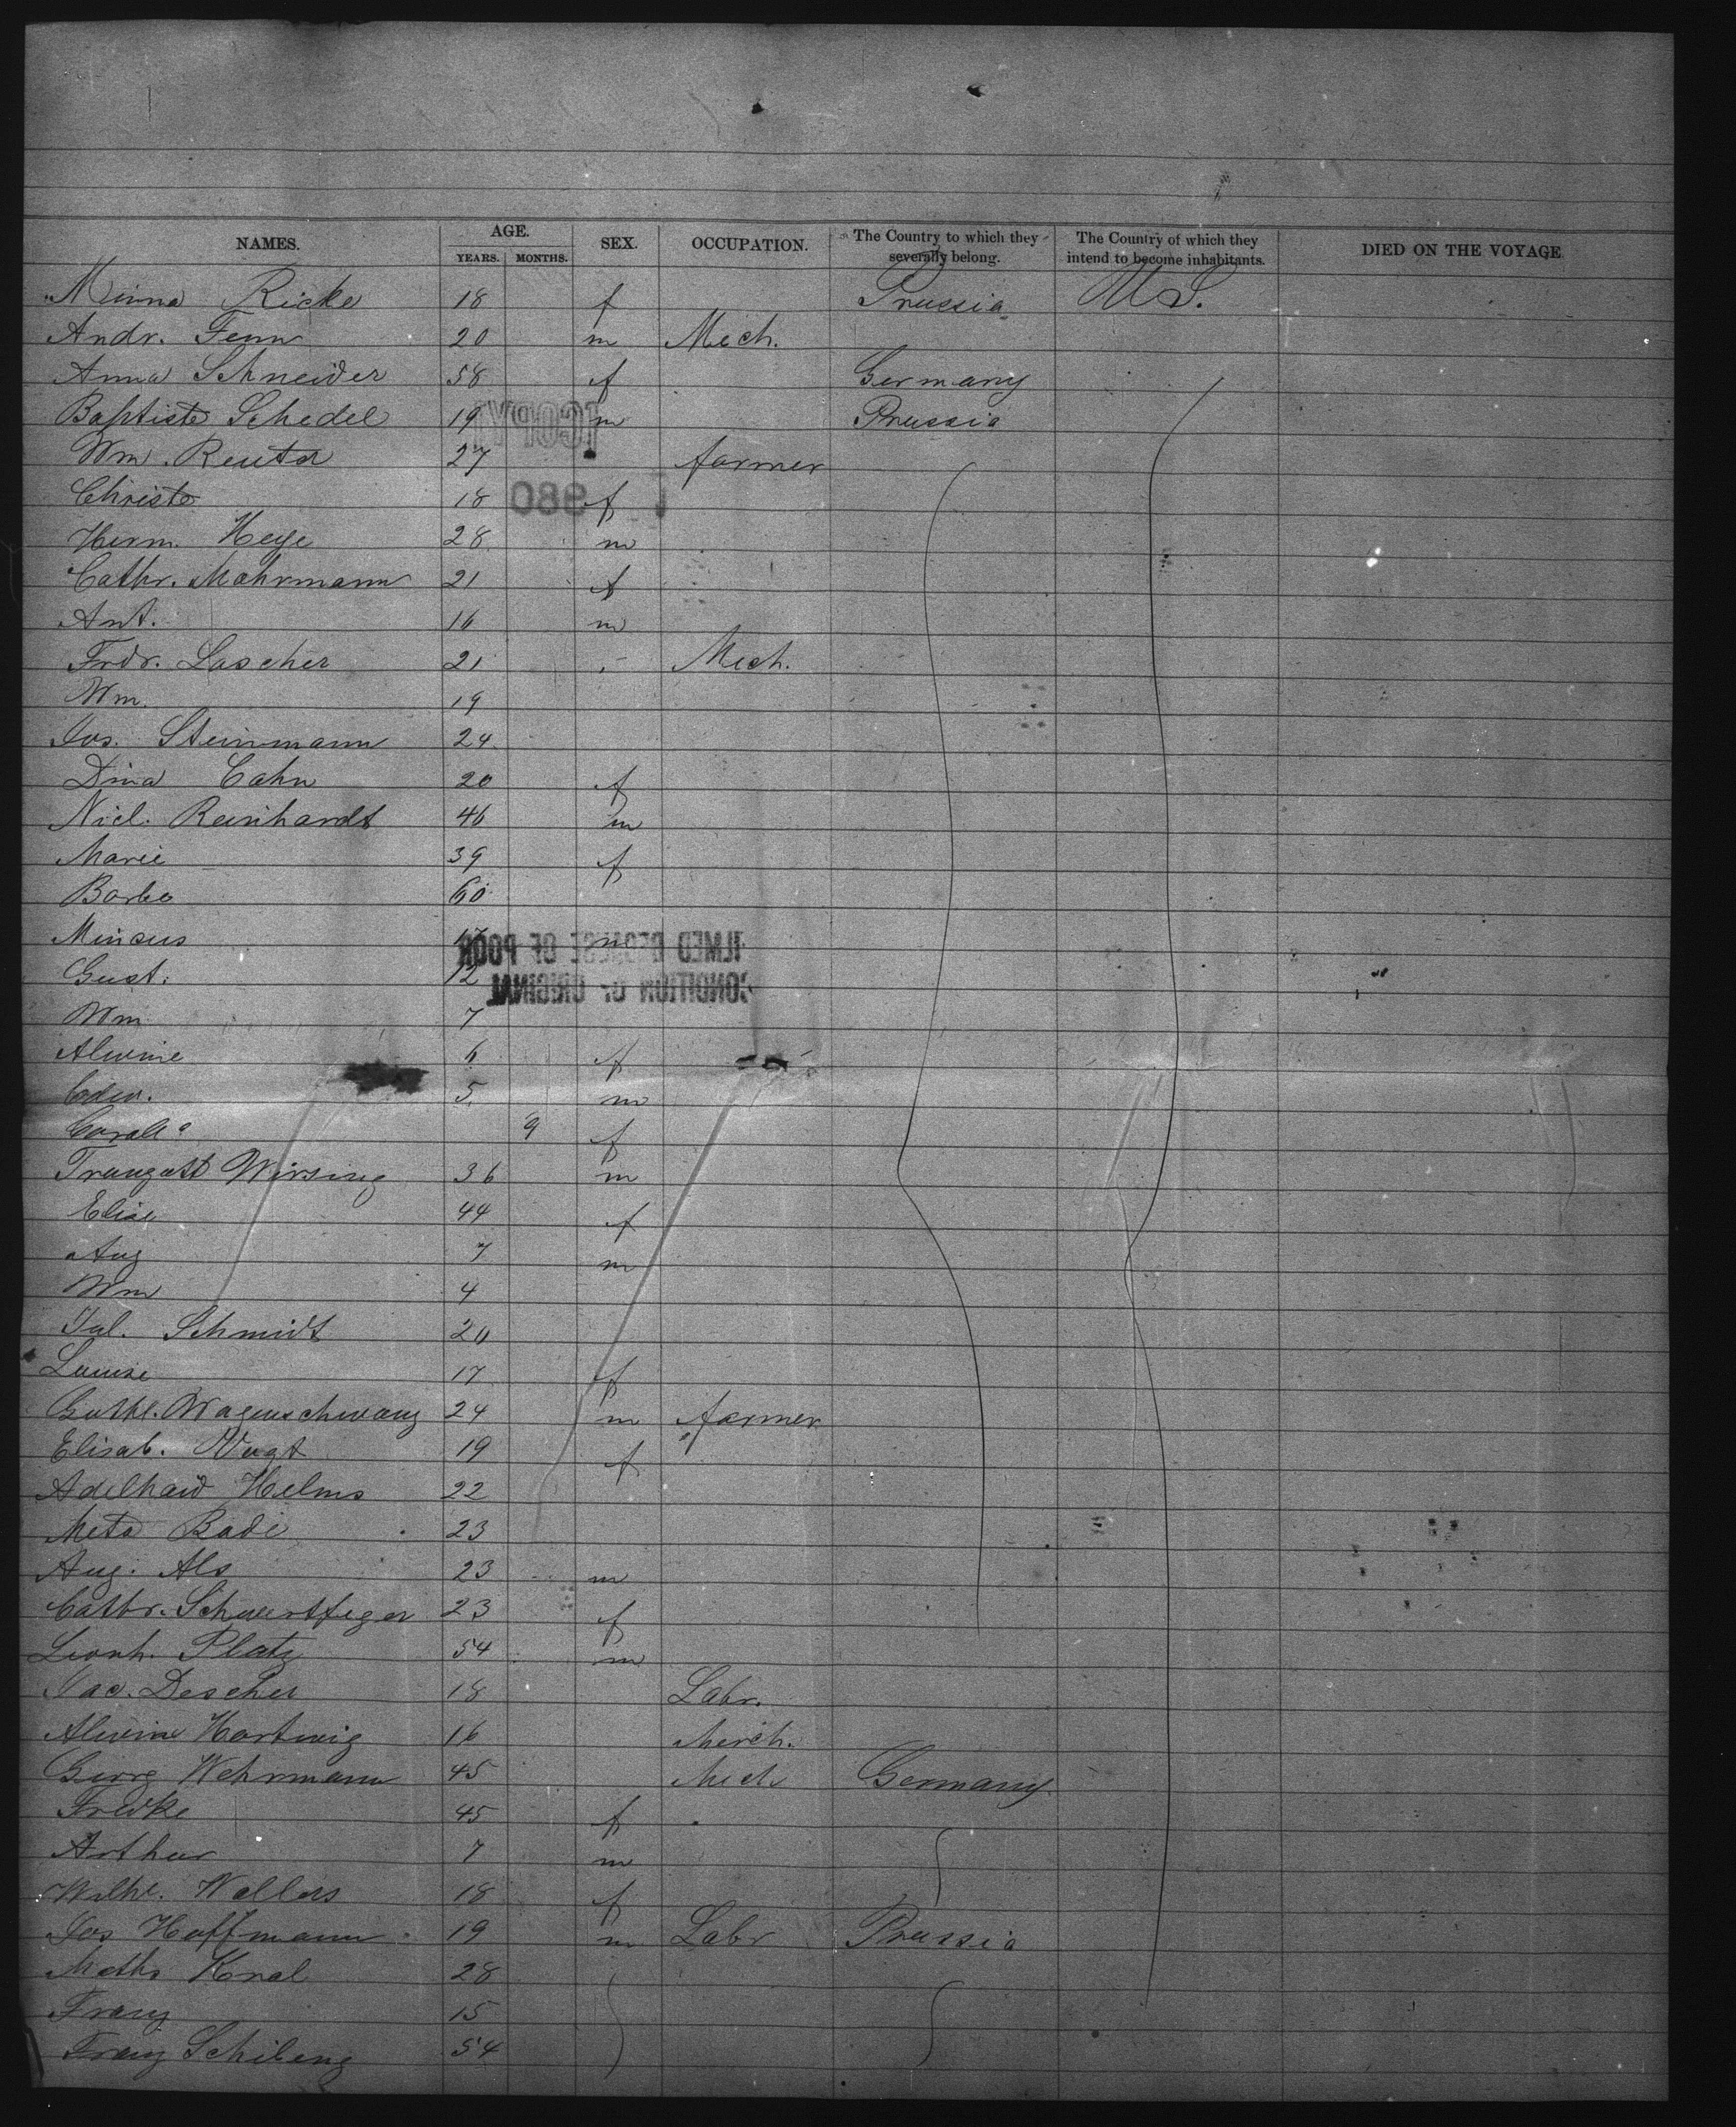 NAMES. AGE. SEX. OCCUPATION. The Country to which they severally belong. The Country of which they intend to become inhabitants. DIED ON THE VOYAGE
YEARS. MONTHS.
Minna Ricke 18 f Prussia U S.
Andr. Fenn 20 m Mech.
Anna Schneider 58 f Germany
Baptiste Schedel 19 m Prussia
Wm. Reuter 27 farmer
Christe 18 f
Herm. Heye 28 m
Cathr. Mohrmann 21 f
Ant. 16 m
Frdr. Lascher 21 Mech.
Wm. 19
Jos. Steinmann 24
Dina Cahn 20 f
Nicl. Reinhardt 46 m
Marie 39 f
Barba 60
17 m
Gust. 12
Wm 7
Alwine 6 f
5 m
9 f
Traugott Wirsing 36 m
Elise 44 f
Aug 7 m
Wm 4
Jul. Schmidt 20
Louise 17 f
Gothl. Wagenschwanz 24 m farmer
Elisab. Vogt 19 f
Adelhaid Helms 22
Meta Bade 23
Aug. Als 23 m
Cathr. Schwertfeger 23 f
Leonh. Platz 54 m
Jac. Descher 18 Labr.
Alwine Hartwig 16 Merch.
Georg Wehrmann 45 Mech Germany
Fredke 45 f
Arthur 7 m
Wilhl. Wellers 18 f
Jos Hoffmann 19 m Labr Prussia
Maths Knal 28
Franz 15
Franz Schibeng 54
COPY
980
FILMED BECAUSE OF POOR
CONDITION OF ORIGINAL